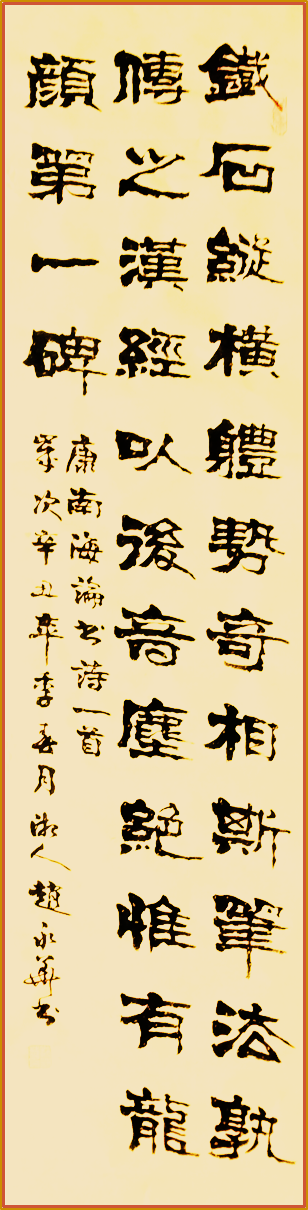 鐵石縱橫體勢奇相斯筆法孰
傳之漢經以後音塵絕惟有龍
顏第一碑
康南海論书詩一首
歲次辛丑年季春月湘人趙永華书